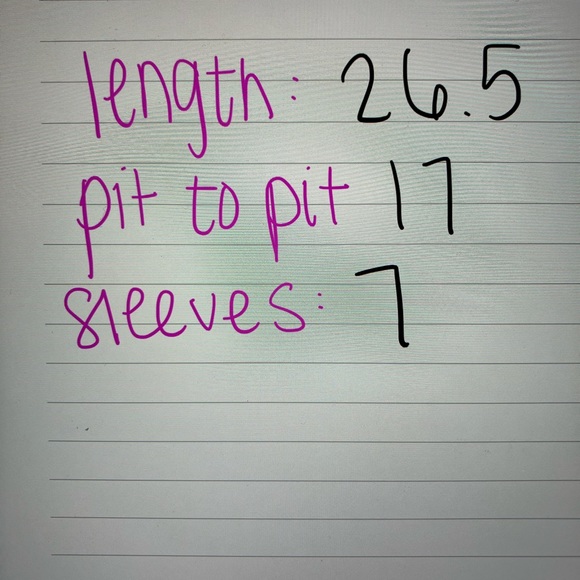 length: 26.5
pit to pit 17
sleeves: 7